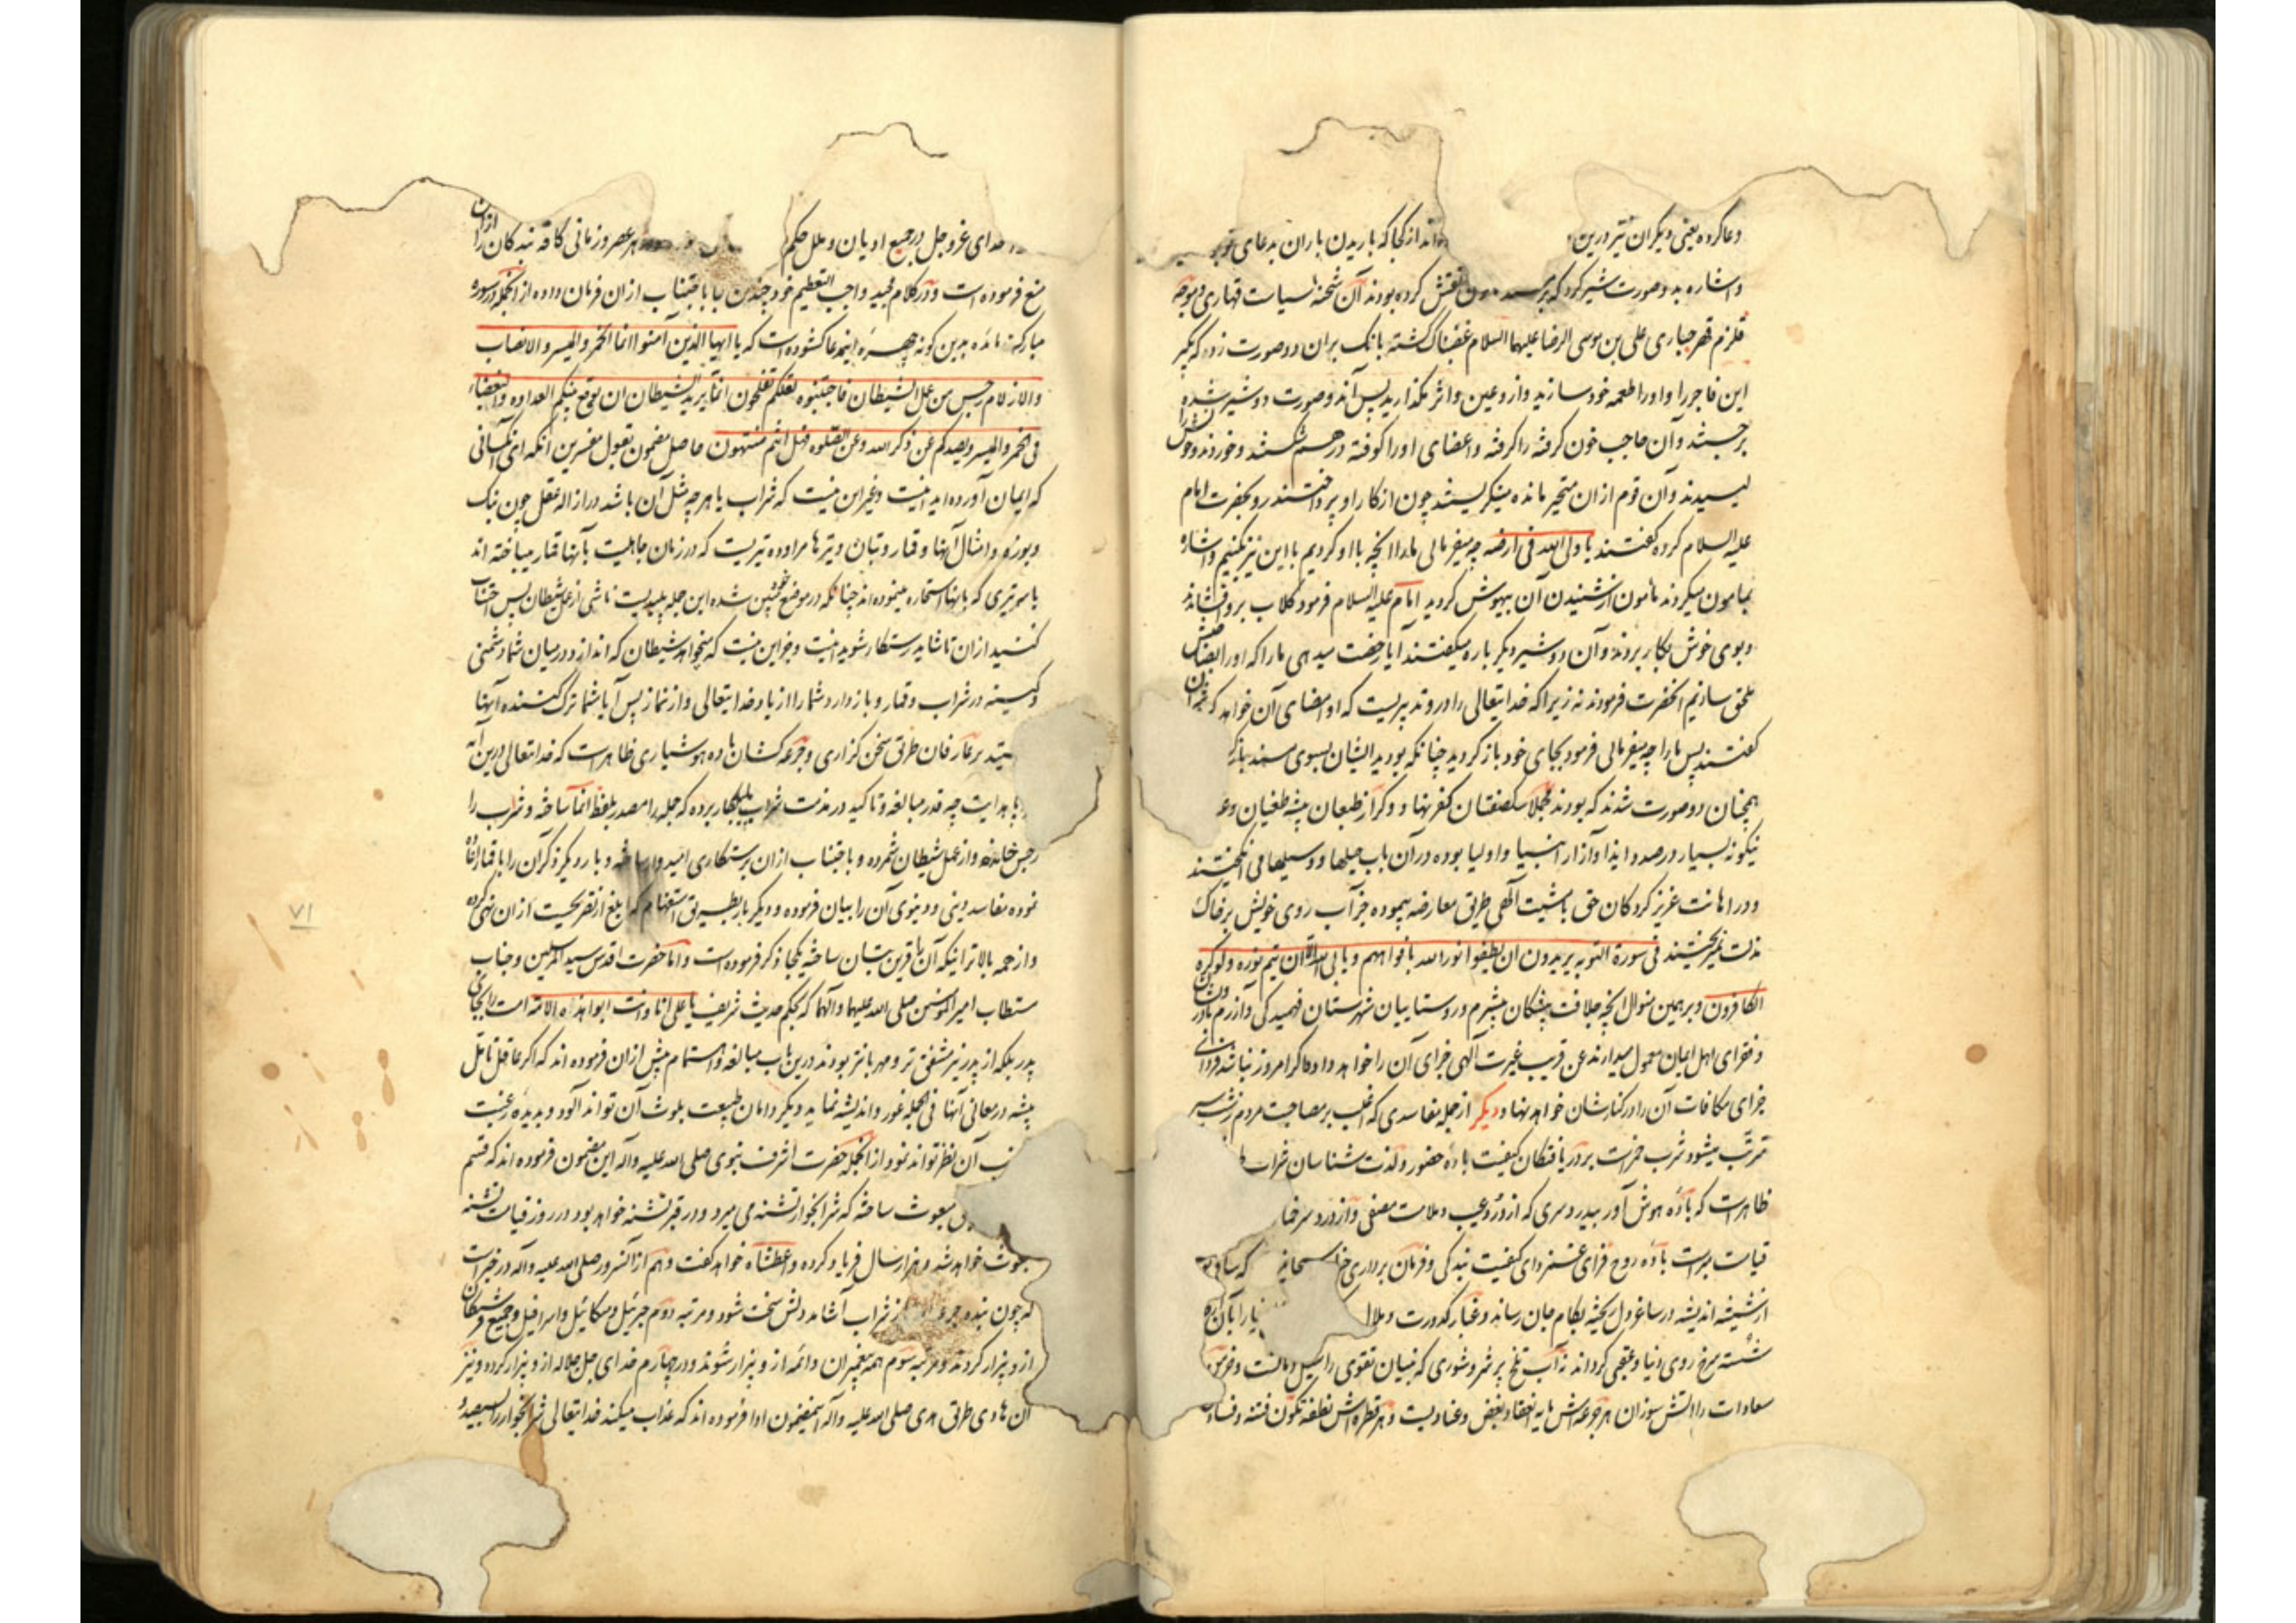 دعا کرده یعنی دیگران نیز درین
از کجا که باریدن باران بدعای تو بود
و اشاره به دو صورت شیر کرد که بر مسند نقش کرده بودند آن شحنهٔ سیاست قهاری و موجهٔ
قلزم قهر جباری علی بن موسی الرضا علیهما السلام غضبناک گشته بانک بران دو صورت زد که بگیر
این فاجر را و او را طعمه خود سازید و از و عین و اثر نگذارید پس آن دو صورت دو شیر شده
برجستند و آن حاجب خون گرفته را گرفته و اعضای او را کوفته در هم شکستند و خوردند و خونش را
لیسیدند و آن قوم از ان متحیر مانده مینگریستند چون از کار او پرداختند رو بحضرت امام
علیه السلام کرده گفتند یا ولی الله فی ارضه چه میفرمائی ما را آنچه با او کردیم با این نیز بکنیم و اشاره
بمامون میکردند مامون از شنیدن آن بیهوش گردید امام علیه السلام فرمود گلاب برو افشاندند
و بوی خوش بکار بردند و آن دو شیر دیگر باره میگفتند آیا رخصت میدهی ما را که او را بصاحبش
ملحق سازیم آنحضرت فرمودند نه زیرا که خدایتعالی را در و تدبیریست که او امضای آن خواهد کرد
گفتند پس ما را چه میفرمائی فرمود بجای خود باز گردید چنانکه بودید ایشان بسوی مسند باز
همچنان دو صورت شدند که بودند
نیکونه بسیار در صدد ایذا و آزار انبیا و اولیا بوده در آن باب حیلها و وسیلها می انگیختند
و در اهانت عزیز کردگان حق با مشیت الهی طریق معارضه پیموده جز آب روی خویش بر خاک
مذلت نمیریختند فی سورة التوبه یریدون ان یطفوا نور الله بافواههم و یابی الله الا ان یتم نوره و لو کره
الکافرون و بر همین منوال آنچه
و فقرای اهل ایمان معمول میدارند عن قریب غیرت الهی جزای آن را خواهد داد و اگر امروز نباشد فردا
جزای مکافات آن را در کنارشان خواهد نهاد و دیگر از جمله مفاسدی که اغلب بر مصاحبت مردم شریر
مترتب میشود شرب خمر است بر دریافتکان کیفیت باده حضور و لذت شناسان شراب
ظاهر است که باده هوش آور بیدردسری که از درد عیب و ملامت مصفی و از درد سر خمار
قیامت مبراست باده روح فزای کیفیت بندکی و فرمان برداری
از شیشه اندیشه در ساغر دل ریخته بکام جان رساند و غبار کدورت و ملا
شسته سرخ روی دنیا و عقبی گرداند نه آب تلخ پر شر و شوری که بنیان تقوی را سیل
سعادات را آتش سوزان هر جرعه اش مایه انعقاد بغض و عناد یست و هر قطره اش نطفه تکون فتنه و فساد
خدای عز و جل در جمیع ادیان و ملل حکم
هر عصر و زمانی کافه بندکان را از ان
منع فرموده است و در کلام مجید واجب التعظیم خود چندین جا باجتناب از ان فرمان داده از آنجمله در سوره
مبارکه مائده بدین گونه چهره این مدعا گشوده است که یا ایها الذین آمنوا انما الخمر و المیسر و الانصاب
و الازلام رجس من عمل الشیطان فاجتنبوه لعلکم تفلحون انما یرید الشیطان ان یوقع بینکم العداوه و البغضاء
فی الخمر و المیسر و یصدکم عن ذکر الله و عن الصلوه فهل انتم منتهون حاصل مضمون بقول مفسرین آنکه ای کسانی
که ایمان آورده اید اینست و غیر این نیست که شراب یا هر چه مثل آن باشد در ازاله عقل چون بنک
و بوزه و امثال آنها و قمار و بتان و تیرها مراد ده تیریست که در زمان جاهلیت بآنها قمار میباخته اند
یا سه تیری که بآنها استخاره مینموده اند چنانکه در موضع خود مبین شده این جمله پلیدیست ناشی از عمل شیطان پس اجتناب
کنید از ان تا شاید رستگار شوید اینست و جز این نیست که میخواهد شیطان که اندازد در میان شما دشمنی
و کینه در شراب و قمار و باز دارد شما را از یاد خدایتعالی و از نماز پس آیا شما ترک کننده آنها
بر عارفان طرق سخن گزاری و جرعه کشان باده هوشیاری ظاهر است که خدایتعالی درین آیه
با هدایت چه قدر مبالغه و تاکید در مذمت شراب بکار برده که جمله را مصدر بلفظ انما ساخته و شرب را
رجس خوانده و از عمل شیطان شمرده و باجتناب از ان برستگاری امیدوار ساخته و بار دیگر ذکر آن را با قمار اعاده
نموده مفاسد دینی و دنیوی آن را بیان فرموده و دیگر بار بطریق استفهام که ابلغ از تصریحست از ان نهی کرده
و از همه بالاتر اینکه آن را قرین بتان ساخته یکجا ذکر فرموده است و اما حضرت اقدس سید المرسلین و جناب
مستطاب امیر المومنین صلی الله علیهما و آلهما که بحکم حدیث شریف یا علی انا و انت ابوا هذه الامة امت را بجای
پدر بلکه از پدر نیز مشفق تر و مهربانتر بودند درین باب مبالغه و اهتمام بیش از ان فرموده اند که اگر عاقل تامل
پیشه در معانی آنها فی الجمله غور و اندیشه نماید دیگر دامان طبیعت بلوث آن تواند آلود و بدیده رغبت
آن نظر تواند نمود از آنجمله حضرت اشرف نبوی صلی الله علیه و آله این مضمون فرموده اند که قسم
مبعوث ساخته که شرابخوار تشنه می میرد و در قبر تشنه خواهد بود و در روز قیامت تشنه
مبعوث خواهد شد و هزار سال فریاد کرده واعطشاه خواهد گفت و هم از آنسرور صلی الله علیه و آله در خبر است
که چون بنده جرعه از شراب آشامد دلش سخت شود و مرتبه دوم جبرئیل و میکائیل و اسرافیل و جمیع فرشتگان
از و بیزار کردند و مرتبه سوم همه پیغمبران و ائمه از و بیزار شوند و در چهارم خدای جل جلاله از و بیزار گردد و نیز
آن هادی طرق هدی صلی الله علیه و آله اینمضمون ادا فرموده اند که عذاب میکند خدایتعالی شرابخوار را بسیصد و
۷۱